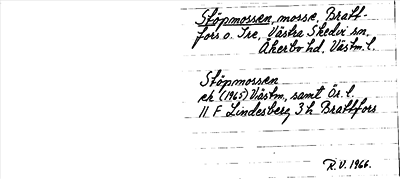 Stöpmossen, mosse, Bratt-
fors o. Tre, Västra Skedvi sn,
Åkerbo hd, Västm. l.
Stöpmossen
ek (1965) Västm, samt Ör. l.
11 F Lindesberg 3 h Brattfors
R.V. 1966.